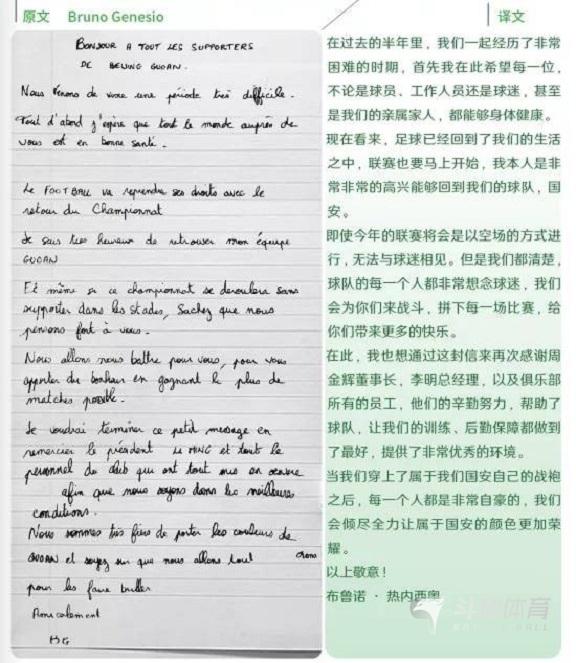 原文 Bruno Genesio
BONJOUR A TOUT LES SUPPORTERS
DE BEIJING GUOAN.
Nous venons de vivre une période très difficile.
Tout d'abord j'espère que tout le monde auprès de
vous est en bonne santé.
Le FOOTBALL va reprendre ses droits avec le
retour du Championnat
Je suis très heureux de retrouver mon équipe
GUOAN
Et même si ce championnat se deroulera sans
supporter dans les stades, Sachez que nous
pensons fort à vous.
Nous allons nous battre pour vous, pour vous
apporter du bonheur en gagnant le plus de
matches possible.
Je voudrai terminer ce petit message en
remercier le président LI MING et tout le
personnel du club qui ont tout mis en oeuvre
afin que nous soyons dans les meilleures
conditions.
Nous sommes très fiers de porter les couleurs de
GUOAN et soyez sur que nous allons tout
pour les faire briller
Amicalement
BG
译文
在过去的半年里，我们一起经历了非常
困难的时期，首先我在此希望每一位，
不论是球员、工作人员还是球迷，甚至
是我们的亲属家人，都能够身体健康。
现在看来，足球已经回到了我们的生活
之中，联赛也要马上开始，我本人是非
常非常的高兴能够回到我们的球队，国
安。
即使今年的联赛将会是以空场的方式进
行，无法与球迷相见。但是我们都清楚，
球队的每一个人都非常想念球迷，我们
会为你们来战斗，拼下每一场比赛，给
你们带来更多的快乐。
在此，我也想通过这封信来再次感谢周
金辉董事长，李明总经理，以及俱乐部
所有的员工，他们的辛勤努力，帮助了
球队，让我们的训练、后勤保障都做到
了最好，提供了非常优秀的环境。
当我们穿上了属于我们国安自己的战袍
之后，每一个人都是非常自豪的，我们
会倾尽全力让属于国安的颜色更加荣
耀。
以上敬意！
布鲁诺 · 热内西奥
体育